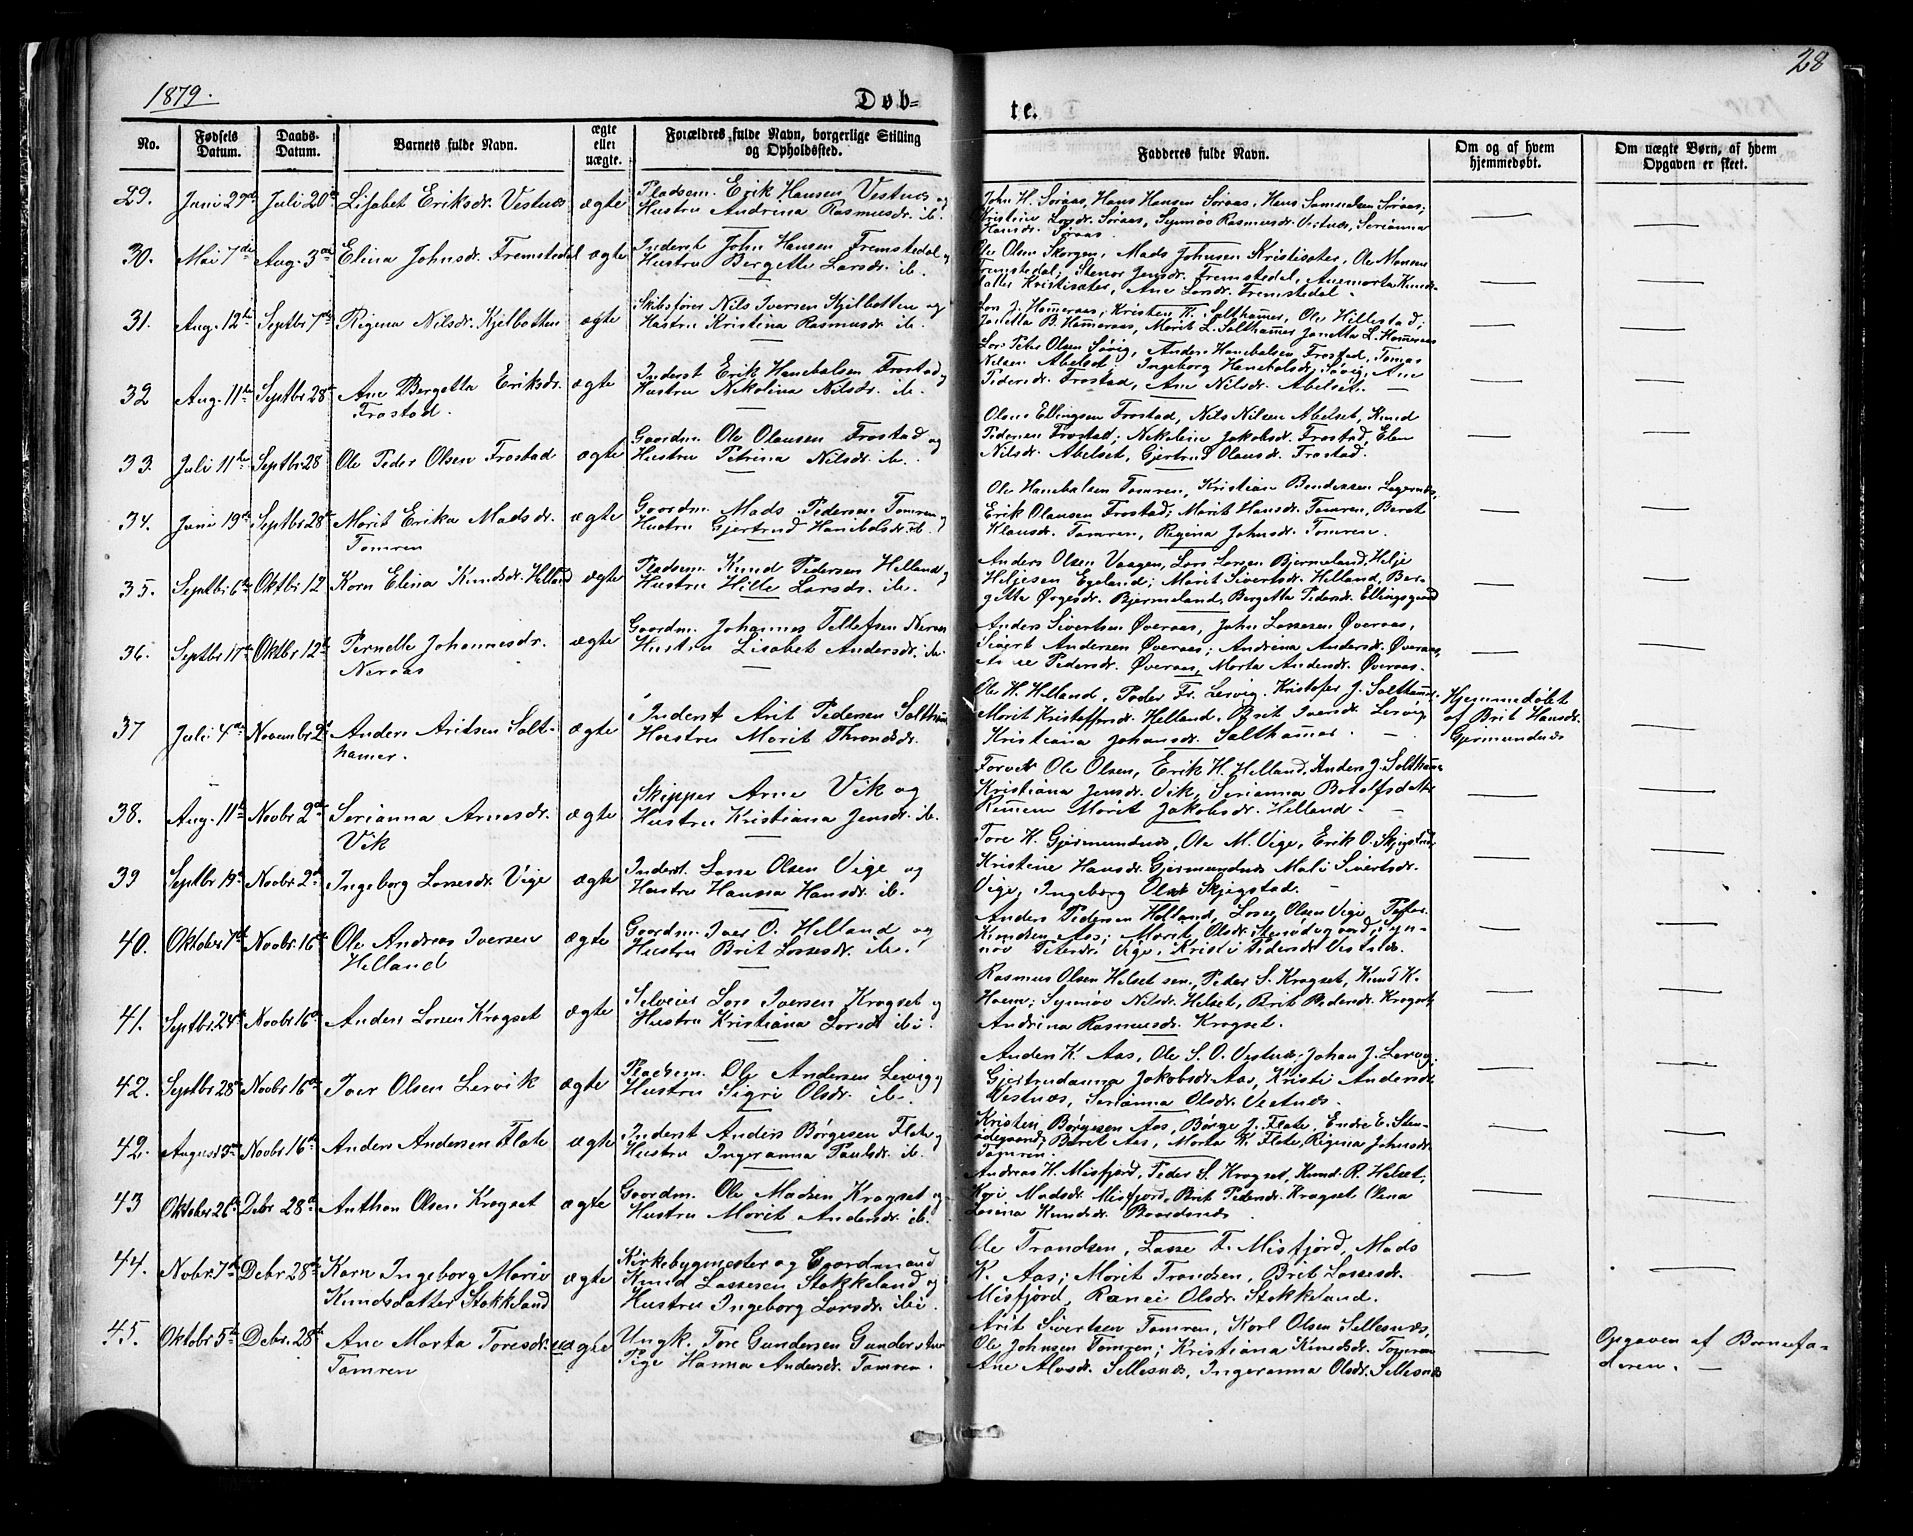 28
1879.
Døb-
te.
No.
Fødsels Datum.
Daabs-Datum.
Barnets fulde Navn.
ægte eller uægte.
Forældres fulde Navn, borgerlige Stilling og Opholdssted.
Faddernes fulde Navn.
Om og af hvem hjemmedøbt.
Om uægte Børn, af hvem Opgaven er skeet.
29. Juni 29de Juli 20de Lisabet Eriksdr. Vestnæs ægte Pladsm. Erik Hansen Vestnæs og
Hustru Andrina Rasmusdr. ib.
John H. Søraas, Hans Hansen Søraas, Hans Samuelsen Søraas;
Kristine Larsdr. Søraas, Synnøv Rasmusdr. Vestnæs, Serianna
Hansdr. Søraas
30. Mai 7de Aug. 3die Elina Johnsdr. Fremstedal ægte Inderst John Hansen Fremstedal og
Hustru Bergette Larsdr. ib.
Ole Olsen Skorgen, Mads Johnsen Kristisæter, Ole Monsen
Fremstedal; Jensdr. Fremstedal, Anemarta Knudsdr.
Kristisæter, Ane Larsdr. Fremstedal.
31. Aug. 12te Septbr. 7de Regina Nilsdr. Kjelbotten ægte Skibsfører Nils Iversen Kjelbotten og
Hustru Kristina Rasmusdr. ib.
Lars J. Hammeraas, Kristen K. Salthammer, Ole Hillestad;
Janetta B. Hammeraas, Marit L. Salthammer Janetta L. Hammeraas
32 Aug. 11te Septbr. 28de Ane Bergetta Eriksdr. ægte Inderst Erik Hanebalsen Frostad og
Frostad. Hustru Nikolina Nilsdr. ib.
Lars Peter Olsen Søvig, Anders Hanebalsen Frostad, Tomas
Nilsen Abelset, Ingeborg Haneboldsdr. Søvig, Ane
Pedersdr. Frostad, Ane Nilsdr. Abelset.
33. Juli 11te Septbr. 28 Ole Peder Olsen Frostad ægte Gaardm. Ole Olausen Frostad og
Hustru Petrina Nilsdr. ib.
Olaus Ellingsen Frostad, Nils Nilsen Abelset, Knud
Pedersen Frostad; Nikoline Jakobsdr. Frostad, Elen
Nilsdr. Abelset, Gjertrud Olausdr. Frostad.
34. Juni 19de Septbr. 28de Marit Erika Madsdr. ægte Gaardm. Mads Pedersen Tomren og
Tomren Hustru Gjertrud Hanibolsdr. ib.
Ole Hanebalsen Tomren, Kristian Bendixsen Legernæs,
Erik Olausen Frostad; Marit Hansdr. Tomren, Beret
Klausdr. Tomren, Regina Johnsdr. Tomren.
35. Septbr. 6te Oktbr. 12 Karn Elina Knudsdr. Helland ægte Pladsm. Knud Pedersen Helland og
Hustru Hille Larsdr. ib.
Anders Olsen Vaagen, Lars Larsen Bjermeland, Helje
Heljesen Egeland; Marit Sivertsdr. Helland, Ber-
gette Ørgesdr. Bjermeland, Bergetta Pedersdr. Ellingsgaard
36. Septbr. 17de Oktbr. 12te Pernelle Johannesdr. ægte Gaardm. Johannes Tellefsen Neraas
Neraas Hustru Lisabet Andersdr. ib.
Anders Sivertsen Øveraas, John Lassesen Øveraas,
Sivert Andersen Øveraas; Andrina Andersdr. Øveraas,
Pedersdr. Øveraas, Marta Andersdr. Øveraas.
37 Juli 4de Novembr. 2de Anders Aritsen Salt- ægte Inderst Arit Pedersen Salthamer
hamer. Hustru Marit Throndsdr.
Ole H. Helland, Peder Fr. Lervig, Kristofer J. Salthamer
Marit Kristoffersdr. Helland, Brit Iversdr. Lervig
Kristiana Johansdr. Salthamer.
Hjemmedøbt
af Brit Hansdr.
Gjermundnæs
38. Aug. 11te Novbr. 2de Serianna Arnesdr. ægte Skipper Arne Vik og
Vik Hustru Kristiana Jensdr. ib.
Forvet Ole Olsen, Erik H. Helland, Anders J. Salthamer
Kristiana Jensdr. Vik, Serianna Botolfsdatter
Remmem Marit Jakobsdr. Helland
39 Septbr. 19de Novbr. 2de Ingeborg Lassesdr. Vige ægte Inderst Lasse Olsen Vige og
Hustru Hanna Hansdr. ib.
Tore K. Gjermundnæs, Ole M. Vige, Erik O. Skjegstad,
Kristine Hansdr. Gjermundnæs Mali Sivertsdr.
Vige, Ingeborg Olsdr Skjegstad.
40. Oktober 7de Novbr. 16de Ole Andreas Iversen ægte Gaardm. Iver O. Helland og
Helland Hustru Brit Lassesdr. ib.
Anders Pedersen Helland, Lasse Olsen Vige,
Knudsen Aas; Marit Olsdr. Stenødegaard, Syn-
nøv Petersdr. Vige, Kristi Pedersdr. Vestnæs.
41. Septbr. 24de Novbr. 16de Anders Larsen Kragset ægte Selveier Lars Iversen Kragset og
Hustru Kristiana Larsdr. ibi.
Rasmus Olsen Helset sen, Peder S. Kragset, Knut K.
Hoem; Synnøv Nilsdr. Helset, Brit Pedersdr. Kragset,
Andrina Rasmusdr. Kragset.
42. Septbr. 28de Novbr. 16de Iver Olsen Lervik ægte Pladsm. Ole Andersen Lervig og
Hustru Sigri Olsdr. ib.
Anders K. Aas, Ole S. O. Vestnæs, Johan J. Lervig;
Gjertrudanna Jakobsdr. Aas, Kristi Andersdr.
Vestnæs, Serianna Olsdr. Vestnæs.
42. August 13de Novbr. 16de Anders Andersen Flate ægte Inderst Anders Børgesen Flate og
Hustru Ingeranna Paulsdr. ib.
Kristen Børgesen Aas, Børge J. Flate, Endre E. Sten-
ødegaard; Beret Aas, Marta K. Flate, Regina Johnsdr.
Tomren.
43 Oktober 26de Debr. 28de Anthon Olsen Kragset ægte Gaardm. Ole Madsen Kragset og
Hustru Marit Andersdr. ib.
Andreas H. Misfjord, Peder S. Kragset, Knud R. Helset,
Kari Madsdr. Misfjord, Brit Pedersdr. Kragset, Olena
Lasina Knudsdr. Baardsnæs.
44. Novbr. 7de Debr. 28de Karn Ingeborg Marie ægte Kirkebygmester og Gaardmand
Knudsdatter Stokkeland Knud Lassesen Stokkeland og
Hustru Ingeborg Larsdr. ibi.
Ole Trandsen, Lasse T. Misfjord, Mads
K. Aas; Marit Trondsen, Brit Lassesdr.
Misfjord, Ranei Olsdr. Stokkeland.
45. Oktbr. 5te Debr. 28de Ane Marta Toresdr. uægte Ungk. Tore Gundersen Gunderstun
Tomren Pige Hanna Andersdr. Tomren.
Arit Sivertsen Tomren, Karl Olsen Sellesnæs,
Ole Johnsen Tomren; Kristiana Knudsdr. Tomren
Ane Alvsdr. Sellesnæs, Ingeranna Olsdr. Sellesnæs
Opgaven af Barnefa-
deren.